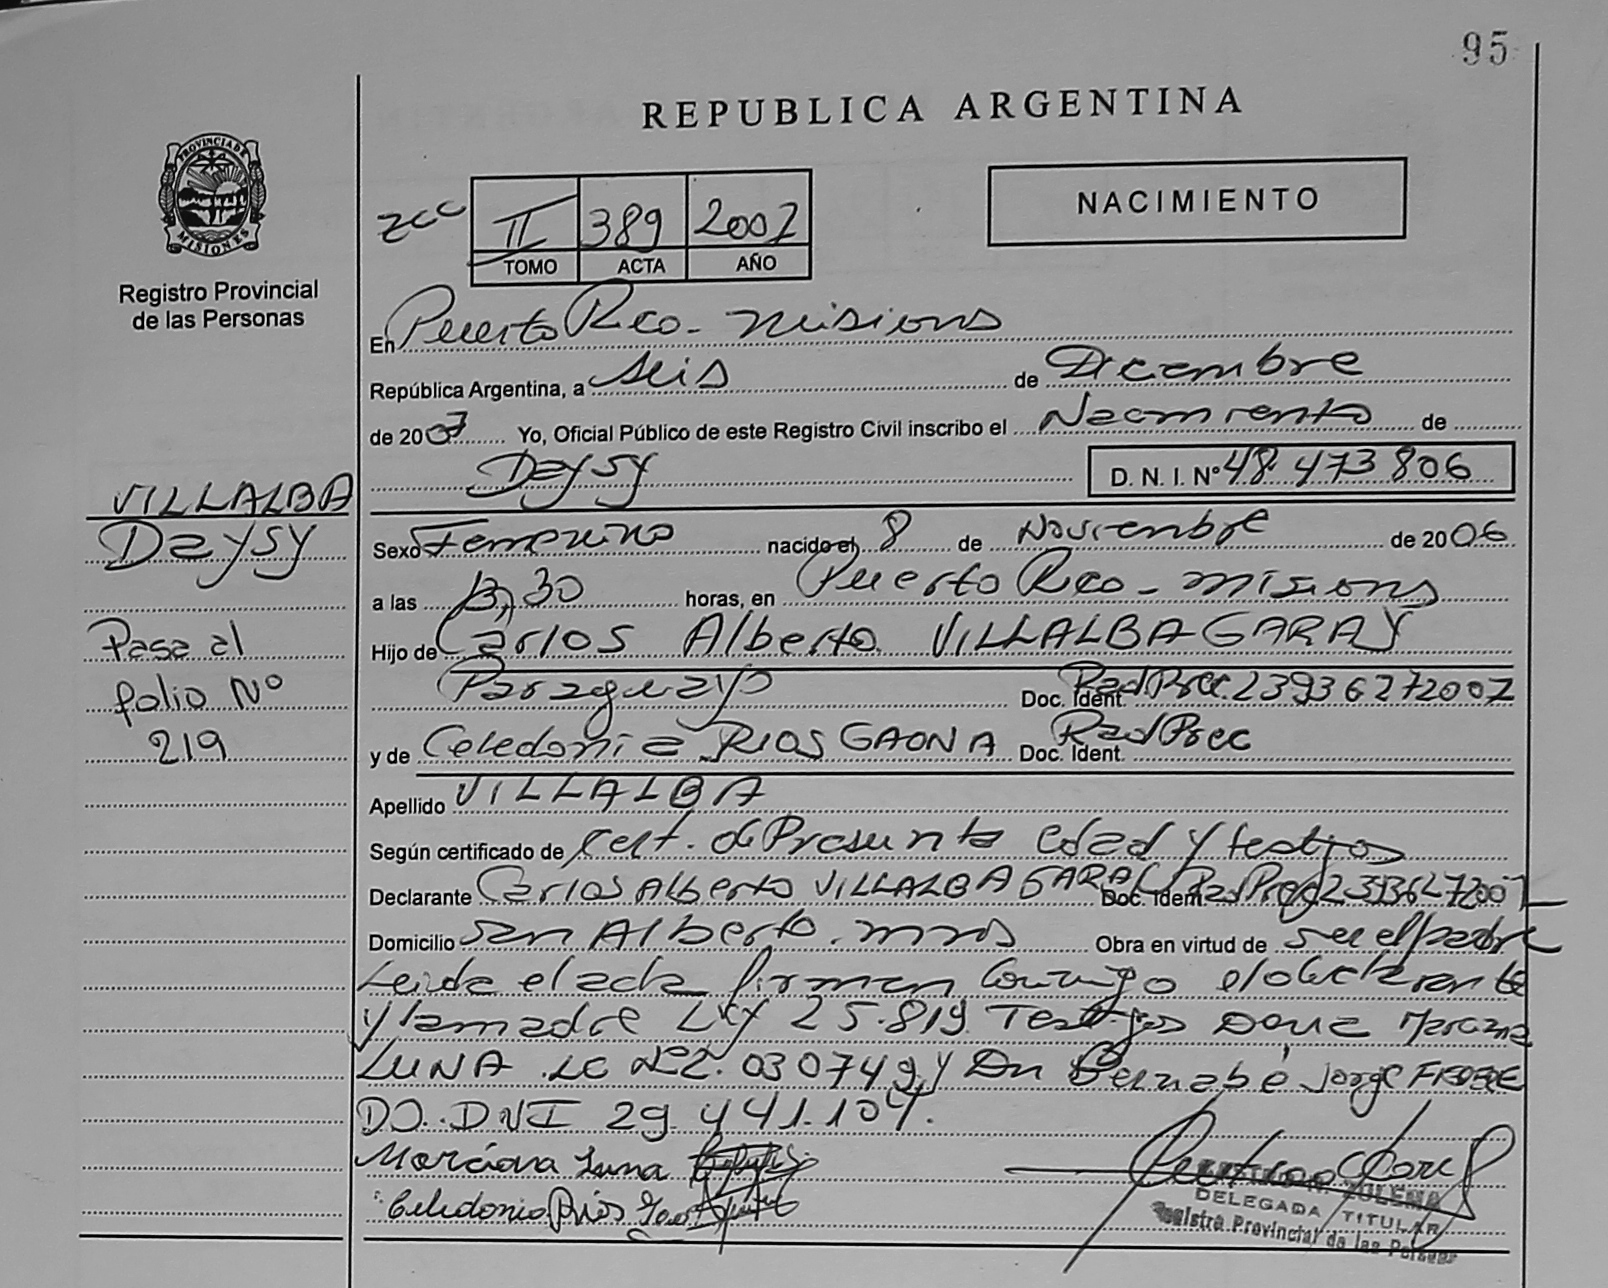 95
REPUBLICA ARGENTINA
PROVINCIA DE MISIONES
Registro Provincial
de las Personas
NACIMIENTO
II 389 2007
TOMO ACTA AÑO
En Puerto Rico - misiones
República Argentina, a seis de Diciembre
de 2007 Yo, Oficial Público de este Registro Civil inscribo el Nacimiento de
Daysy D. N. I. Nº 48.473806
VILLALBA
Daysy
Pasa al
folio Nº
219
Sexo Femenino nacido el 8 de Noviembre de 2006
a las 13,30 horas, en Puerto Rico - misiones
Hijo de Carlos Alberto VILLALBA GARAY
Paraguayo Doc. Ident. RadPrec. 23936272007
y de Celedonia RIOS GAONA Doc. Ident. RadPrec
Apellido VILLALBA
Según certificado de Cert. de Presunta edad y testigos
Declarante Carlos Alberto VILLALBA GARAY Doc. Ident.
Domicilio San Alberto - mnes Obra en virtud de ser el padre
Leida el acta firman conmigo el declarante
y la madre Ley 25.819 Testigos Doña Marciana
LUNA LC Nº 2.030749 y Dn Bernabé Jorge
DO. DNI 29.441.104.
Marciana Luna
Celedonia Rios
ZULEMA
DELEGADA TITULAR
Registro Provincial de las Personas